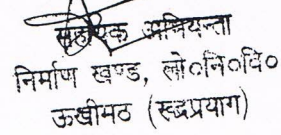 सहायक अभियन्ता
निर्माण खण्ड, लो०नि०वि०
ऊखीमठ (रूद्रप्रयाग)